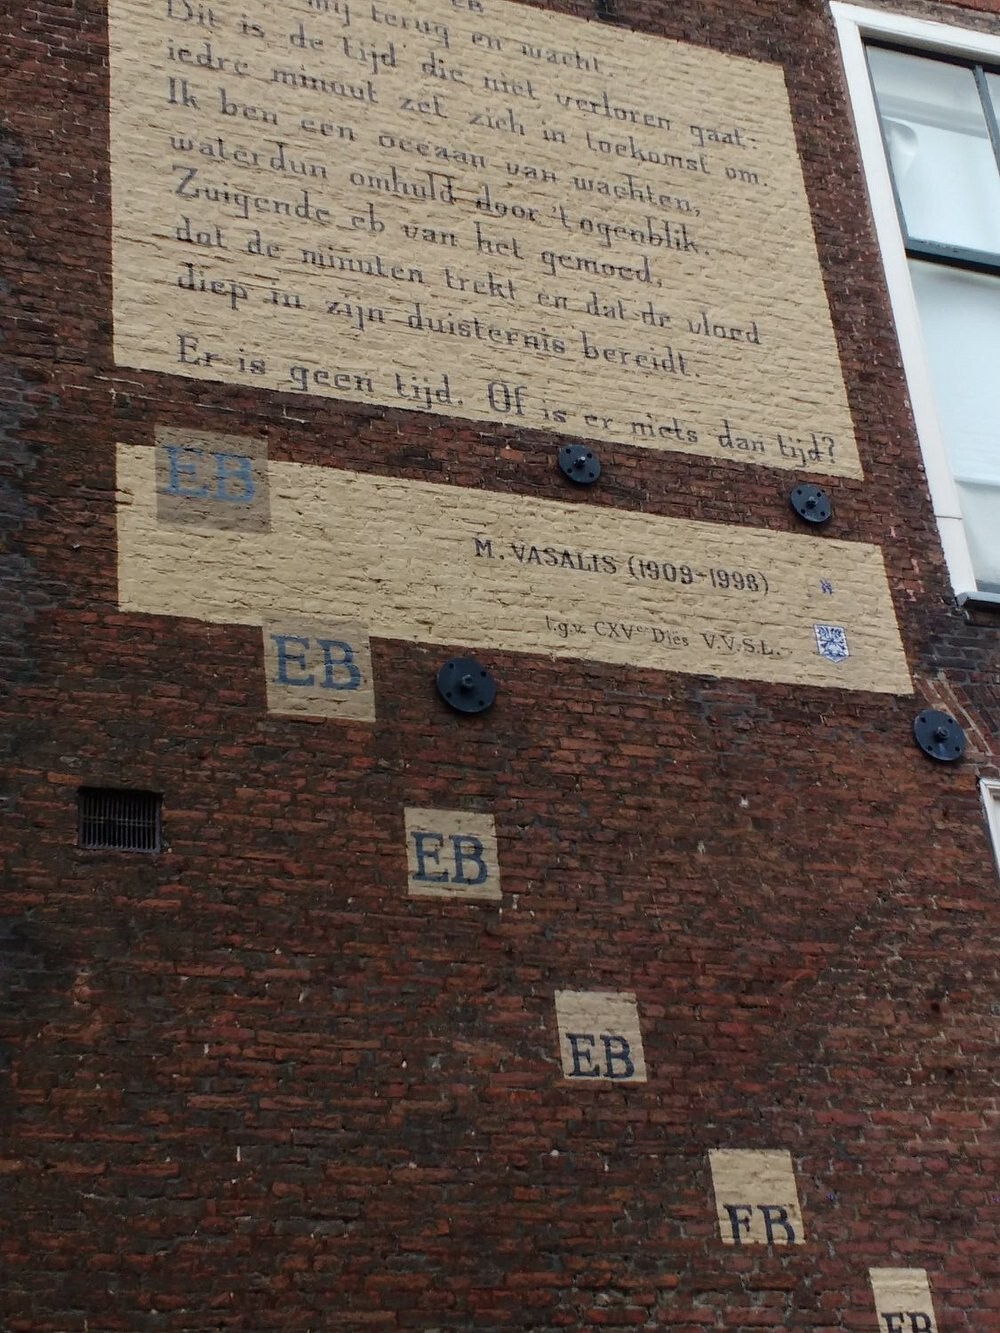 EB
mij terug en wacht.
Dit is de tijd die niet verloren gaat:
iedre minuut zet zich in toekomst om.
Ik ben een oceaan van wachten,
waterdun omhuld door 't ogenblik.
Zuigende eb van het gemoed,
dat de minuten trekt en dat de vloed
diep in zijn duisternis bereidt.
Er is geen tijd. Of is er niets dan tijd?
EB
M. VASALIS (1909-1998)
t.g.v. CXVe Dies V.V.S.L.
EB
EB
EB
EB
EB